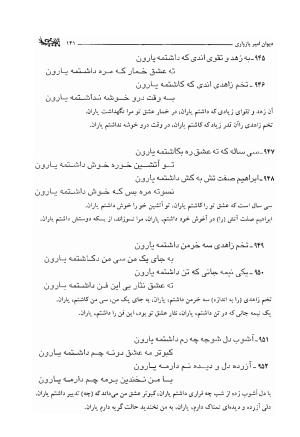 دیوان امیر پازواری
۱۴۱
۹۴۵ــ به زهد و تقوی اندی که داشتمه یارون
ته عشق خمار کـه مـره داشـتمه یـارون
۹۴۶ ــ تخم زاهدی اندی که کاشتمه یارون
بـه وقت درو خـوشه نـداشـتمه یـارون
آن زهد و تقوای زیادی که داشتم یاران، در خمار عشق تو مرا نگهداشت یاران.
تخم زاهدی را آن قدر زیادی که کاشتم، یاران، در وقت درو خوشه نداشتم یاران.
۹۴۷ــ سی ساله که ته عشق ره بکاشتمه یارون
تـو آتشـین خـوره خـوش داشـتمه یـارون
۹۴۸ــ ابراهیم صفت تش به کش داشتمه یارون
نسوته مره بس کـه خـوش داشـتمه یـارون
سی سال است که عشق تو را کاشتم یاران، تو آتشین خو را خوش داشتم یاران.
ابراهیم صفت آتش (را) در آغوش خود داشتم، یاران، مرا نسوزاند، از بسکه دوستش داشتم یاران.
۹۴۹ ــ تخم زاهدی سه خرمن داشتمه یارون
به جای یک من سی من دکـاشتمه یـارون
۹۵۰ ــ یکی نیمه جانی که تن داشتمه یارون
ته عشق نثار بی این فـن داشـتمه یـارون
تخم زاهدی (را به اندازه) سه خرمن داشتم، یاران، به جای یک من، سی من کاشتم، یاران.
یک نیمه جانی که در تن داشتم، یاران، نثار عشق تو بود، این فن را داشتم، یاران.
۹۵۱ــ آشوب دل شوجه چه رم داشتمه یارون
کبوتر مه عشق دونه چـم داشـتمه یـارون
۹۵۲ ــ آزرده دل و دیـده نـم دارمـه یـارون
بـا مـن نـخندین بـرمه چـم دارمـه یـارون
دلی آزرده و دیده‌ای نمناک دارم، یاران، به من نخندید حالت گریه دارم یاران.